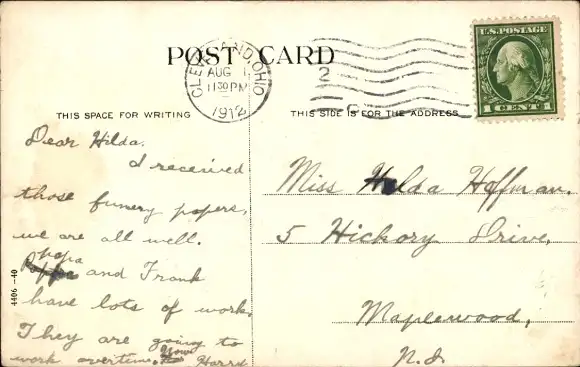 POST CARD
CLEVELAND, OHIO
AUG 1
11 30 PM
1912
2
U.S. POSTAGE
1 CENT 1
THIS SPACE FOR WRITING
THIS SIDE IS FOR THE ADDRESS
Dear Hilda.
I received
those funery papers,
we are all well.
papa
and Frank
have lots of work.
They are going to
work overtime. now
Harry
Miss Hilda Hoffman.
5 Hickory Drive,
Maplewood,
N.J.
4406-40